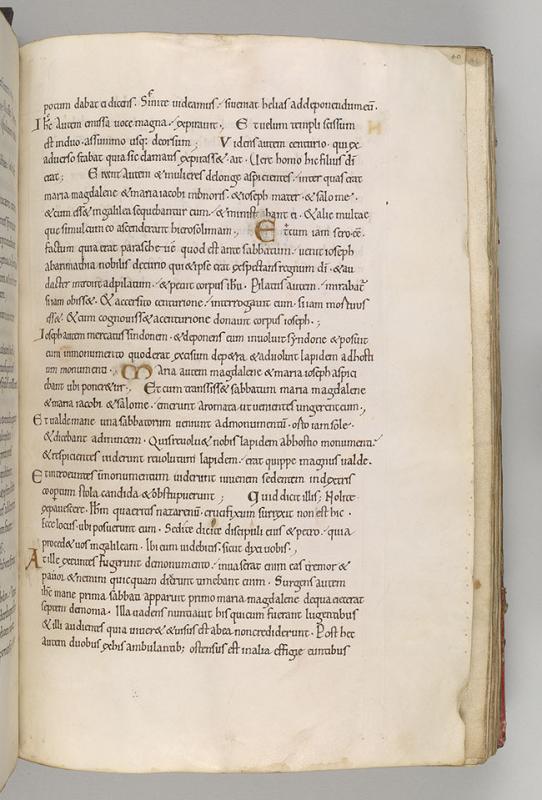 40
potum dabat ei dicens. Sinite uideamus. si ueniat helias ad deponendum eū.
Ihc autem emissa uoce magna. expirauit. Et uelum templi scissum
est in duo. a ssummo usq; deorsum; Videns autem centurio. qui ex
aduerso stabat quia sic damans expirasset. ait. Uere homo hic filius dī
erat; Erant autem & mulieres de longe aspicientes. inter quas erat
maria magdalene & maria iacobi minoris. & ioseph mater. & salome.
& cum ess& in galilea sequebantur eum. & ministrabant ei. & aliae multae
que simul cum eo ascenderant hierosolimam. Et cum iam sero eē.
factum quia erat parasceue quod est ante sabbatum. uenit ioseph
ab arimathia nobilis decurio qui & ipse erat expectans regnum dī. & au
dacter introiit ad pilatum. & petiit corpus ihu. Pilatus autem. mirabat
si iam obisset. & accersito centurione. interrogauit eum. si iam mortuus
ess&. & cum cognouiss& a centurione donauit corpus ioseph;
Ioseph autem mercatus sindonem. & deponens eum inuoluit syndone & posuit
eum in monumento quod erat excisum de petra. & aduoluit lapidem ad hosti
um monumenti. Maria autem magdalene & maria ioseph aspici
ebant ubi poneretur; Et cum transiss& sabbatum maria magdalene
& maria iacobi & salome. emerunt aromata ut uenientes ungerent eum;
Et ualde mane una sabbatorum ueniunt ad monumentū. orto iam sole.
& dicebant ad inuicem. Quis reuoluet nobis lapidem ab hostio monumenti.
& respicientes uiderunt reuolutum lapidem. erat quippe magnus ualde.
Et introeuntes in monumentum uiderunt iuuenem sedentem in dextris
coopertum stola candida & obstupuerunt; Qui dicit illis; Nolite
expauescere. Ihm queritis nazarenū. crucifixum surrexit non est hic.
Ecce locus. ubi posuerunt eum. Sed ite dicite discipulis eius & petro. quia
precedet uos in galileam. Ibi eum uidebitis. sicut dixit uobis;
At ille exeuntes fugerunt de monumento. inuaserat enim eas tremor &
pauor. & nemini quicquam dixerunt timebant enim. Surgens autem
ihc mane prima sabbati apparuit primo maria magdalene de qua eiecerat
septem demonia. Illa uadens nuntiauit his qui cum eo fuerant lugentibus
& illi audientes quia uiueret & uisus est ab ea. non crediderunt. Post hec
autem duobus ex his ambulantib; ostensus est in alia effigie euntibus